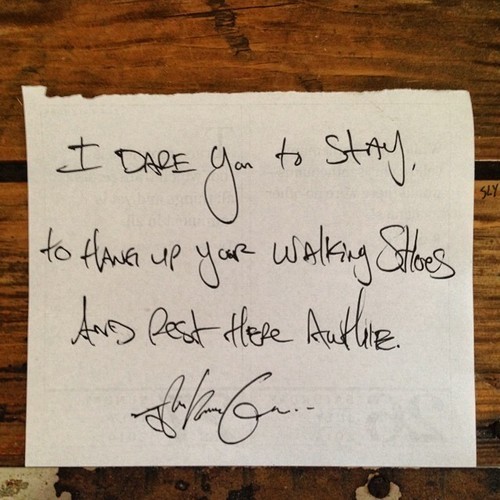 I DARE you to STAY,
to HANG UP your WALKING SHOES
AND REST HERE AWHILE.
SLY